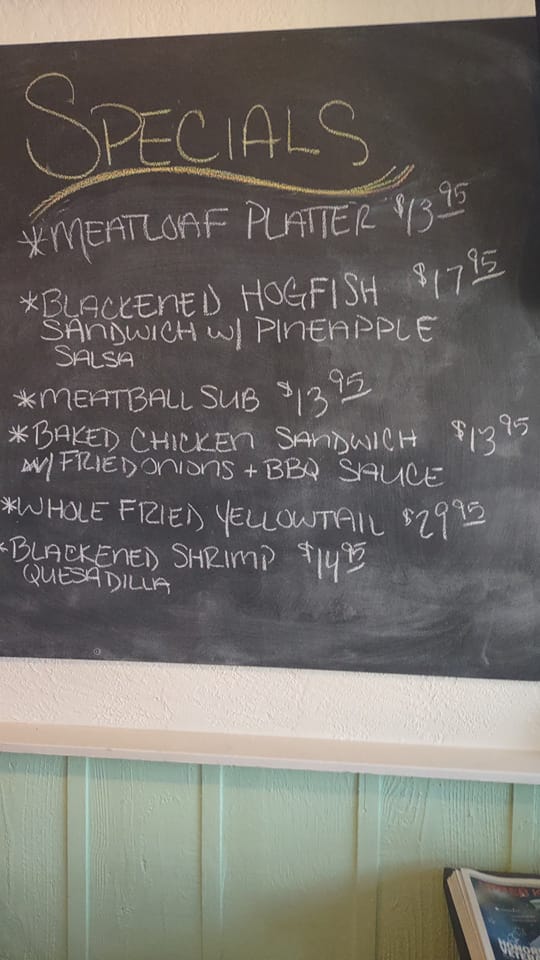 SPECIALS
*MEATLOAF PLATTER $13.95
*BLACKENED HOGFISH $17.95
SANDWICH W/ PINEAPPLE
SALSA
*MEATBALL SUB $13.95
*BAKED CHICKEN SANDWICH $13.95
W/ FRIED ONIONS + BBQ SAUCE
*WHOLE FRIED YELLOWTAIL $29.95
*BLACKENED SHRIMP $14.95
QUESADILLA